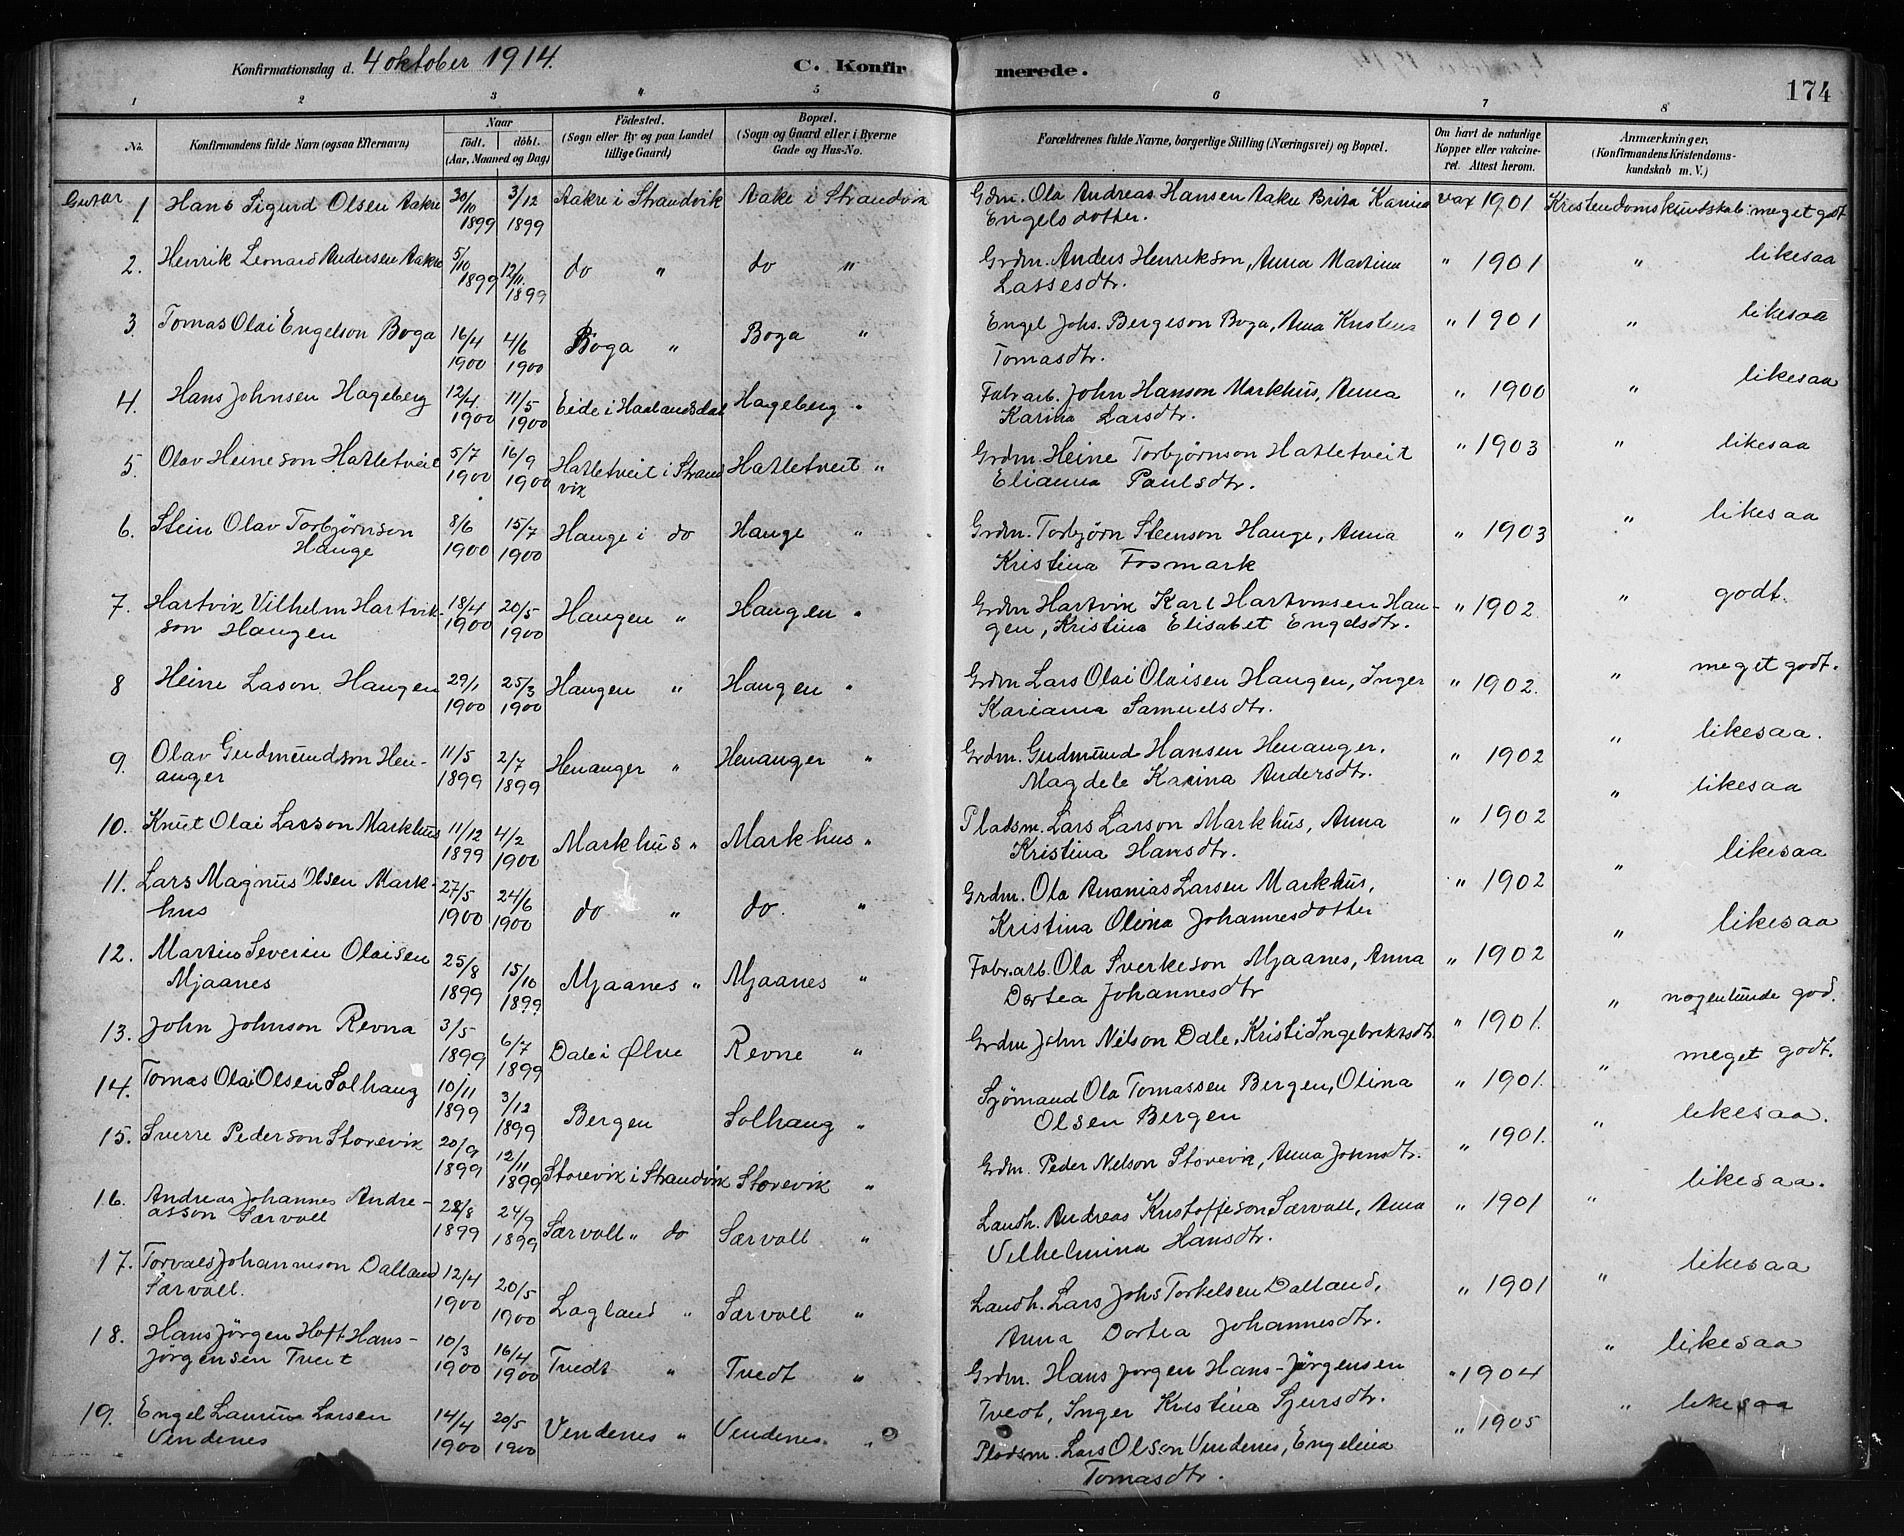 Konfirmationsdag d. 4 oktober 1914. C. Konfirmerede. 174
1 2 3 4 5 6 7 8
No. Konfirmandens fulde Navn (ogsaa Efternavn) Naar født. døbt. (Aar, Maaned og Dag) Fødested. (Sogn eller By og paa Landet tillige Gaard) Bopæl. (Sogn og Gaard eller i Byerne Gade og Hus-No. Forældrenes fulde Navne, borgerlige Stilling (Næringsvei) og Bopæl. Om havt de naturlige Kopper eller vakcineret. Attest herom. Anmærkninger, (Konfirmandens Kristendomskundskab m. V.)
Gutar
1. Hans Sigurd Olsen Aakre 30/10 1899 3/12 1899 Aakre i Strandvik Aake i Strandvik Grdm. Ola Andreas Hansen Aakre Brita Karina Engelsdotter. vax 1901 Kristendomskundskab: meget godt
2. Henrik Leonard Andersen Aakre 5/10 1899 12/11. 1899 do " do " Grdm. Anders Henrikson, Anna Martina Lassesdtr. " 1901 " likesaa
3. Tomas Olai Engelson Boga 16/4 1900 4/6 1900 Boga " Boga " Engel Johs. Bergeson Boga, Anna Kristina Tomasdtr. " 1901 " likesaa
4. Hans Johnsen Hageberg 12/4 1900 11/5 1900 Eide i Haalandsdal Hageberg " Fabr arb. John Hanson Markhus, Anna Karina Larsdtr. " 1900 " likesaa
5. Olav Heineson Hatletveit 5/7 1900 16/9 1900 Hatletveit i Strandvik Hatletveit " Grdm. Heine Torbjørnson Hatletveit Elianna Paulsdtr. " 1903 " likesaa
6. Stein Olav Torbjørnson Hauge 8/6 1900 15/7 1900 Hauge i do Hauge " Grdm. Torbjørn Steenson Hauge, Anna Kristina Fosmark " 1903 " likesaa
7. Hartvik Vilhelm Hartvikson Haugen 18/4 1900 20/5 1900 Haugen " Haugen " Grdm Hartvik Karl Hartviksen Haugen, Kristina Elisabet Engelsdtr. " 1902 " godt.
8 Heine Lason Haugen 29/1 1900 25/3 1900 Haugen " Haugen " Grdm Lars Olai Olaisen Haugen, Inger Karianna Samuelsdtr. " 1902. " meget godt.
9. Olav Gudmundson Henanger 11/5 1899 2/7 1899 Henanger " Henanger " Grdm. Gudmund Hansen Henanger, Magdele Karina Andersdtr. " 1902 " likesaa.
10. Knut Olai Larson Markhus 11/12 1899 4/2 1900 Markhus " Markhus " Pladsm. Lars Larson Markhus, Anna Kristina Hansdtr. " 1902 " likesaa
11. Lars Magnus Olsen Markhus 27/5 1900 24/6 1900 do " do. " Grdm. Ola Ananias Larsen Markhus, Kristina Olina Johannesdotter " 1902 " likesaa
12. Martin Severin Olaisen Mjaanes 25/8 1899 15/10 1899 Mjaanes " Mjaanes " Fabr.arb. Ola Sverkeson Mjaanes, Anna Dortea Johannesdtr " 1902 " likesaa
13. John Johnson Revna 3/5 1899 6/7 1899 Dale i Ølve Revne " Grdm John Nilson Dale, Kristi Ingebriktsdtr. " 1901. " nogenlunde god.
14. Tomas Olai Olsen Solhaug 10/11 1899 3/12 1899 Bergen Solhaug " Sjømand Ola Tomassen Bergen, Olina Olsen Bergen " 1901. " meget godt.
15. Sverre Pederson Storevik 20/9 1899 12/11 1899 Storevik i Strandvik Storevik " Grdm. Peder Nelson Storevik, Anna Johnsdtr. " 1901. " likesaa.
16. Andreas Johannes Andreasson Særvoll 28/8 1899 24/9 1899 Særvoll " do Særvoll " Landh. Andreas Kristoffeson Særvoll, Anna Vilhelmina Hansdtr. " 1901 " likesaa.
17. Torvald Johanneson Dalland Særvoll. 12/4 1900 20/5 1900 Lagland " Særvoll " Landh. Lars Johs Torkelsen Dalland, Anna Dortea Johannesdtr. " 1901 " likesaa
18. Hans Jörgen Hoft Hans-Jörgensen Tveit 10/3 1900 16/4 1900 Tvedt " Tvedt " Grdm. Hans Jørgen Hans-Jørgensen Tvedt, Inger Kristina Sjursdtr. " 1904 " likesaa
19. Engel Laurius Larsen Vendenes 14/4 1900 20/5 1900 Vendenes " Vendenes. " Pladsm. Lars Olson Vendenes, Engelina Tomasdtr. " 1905 " likesaa